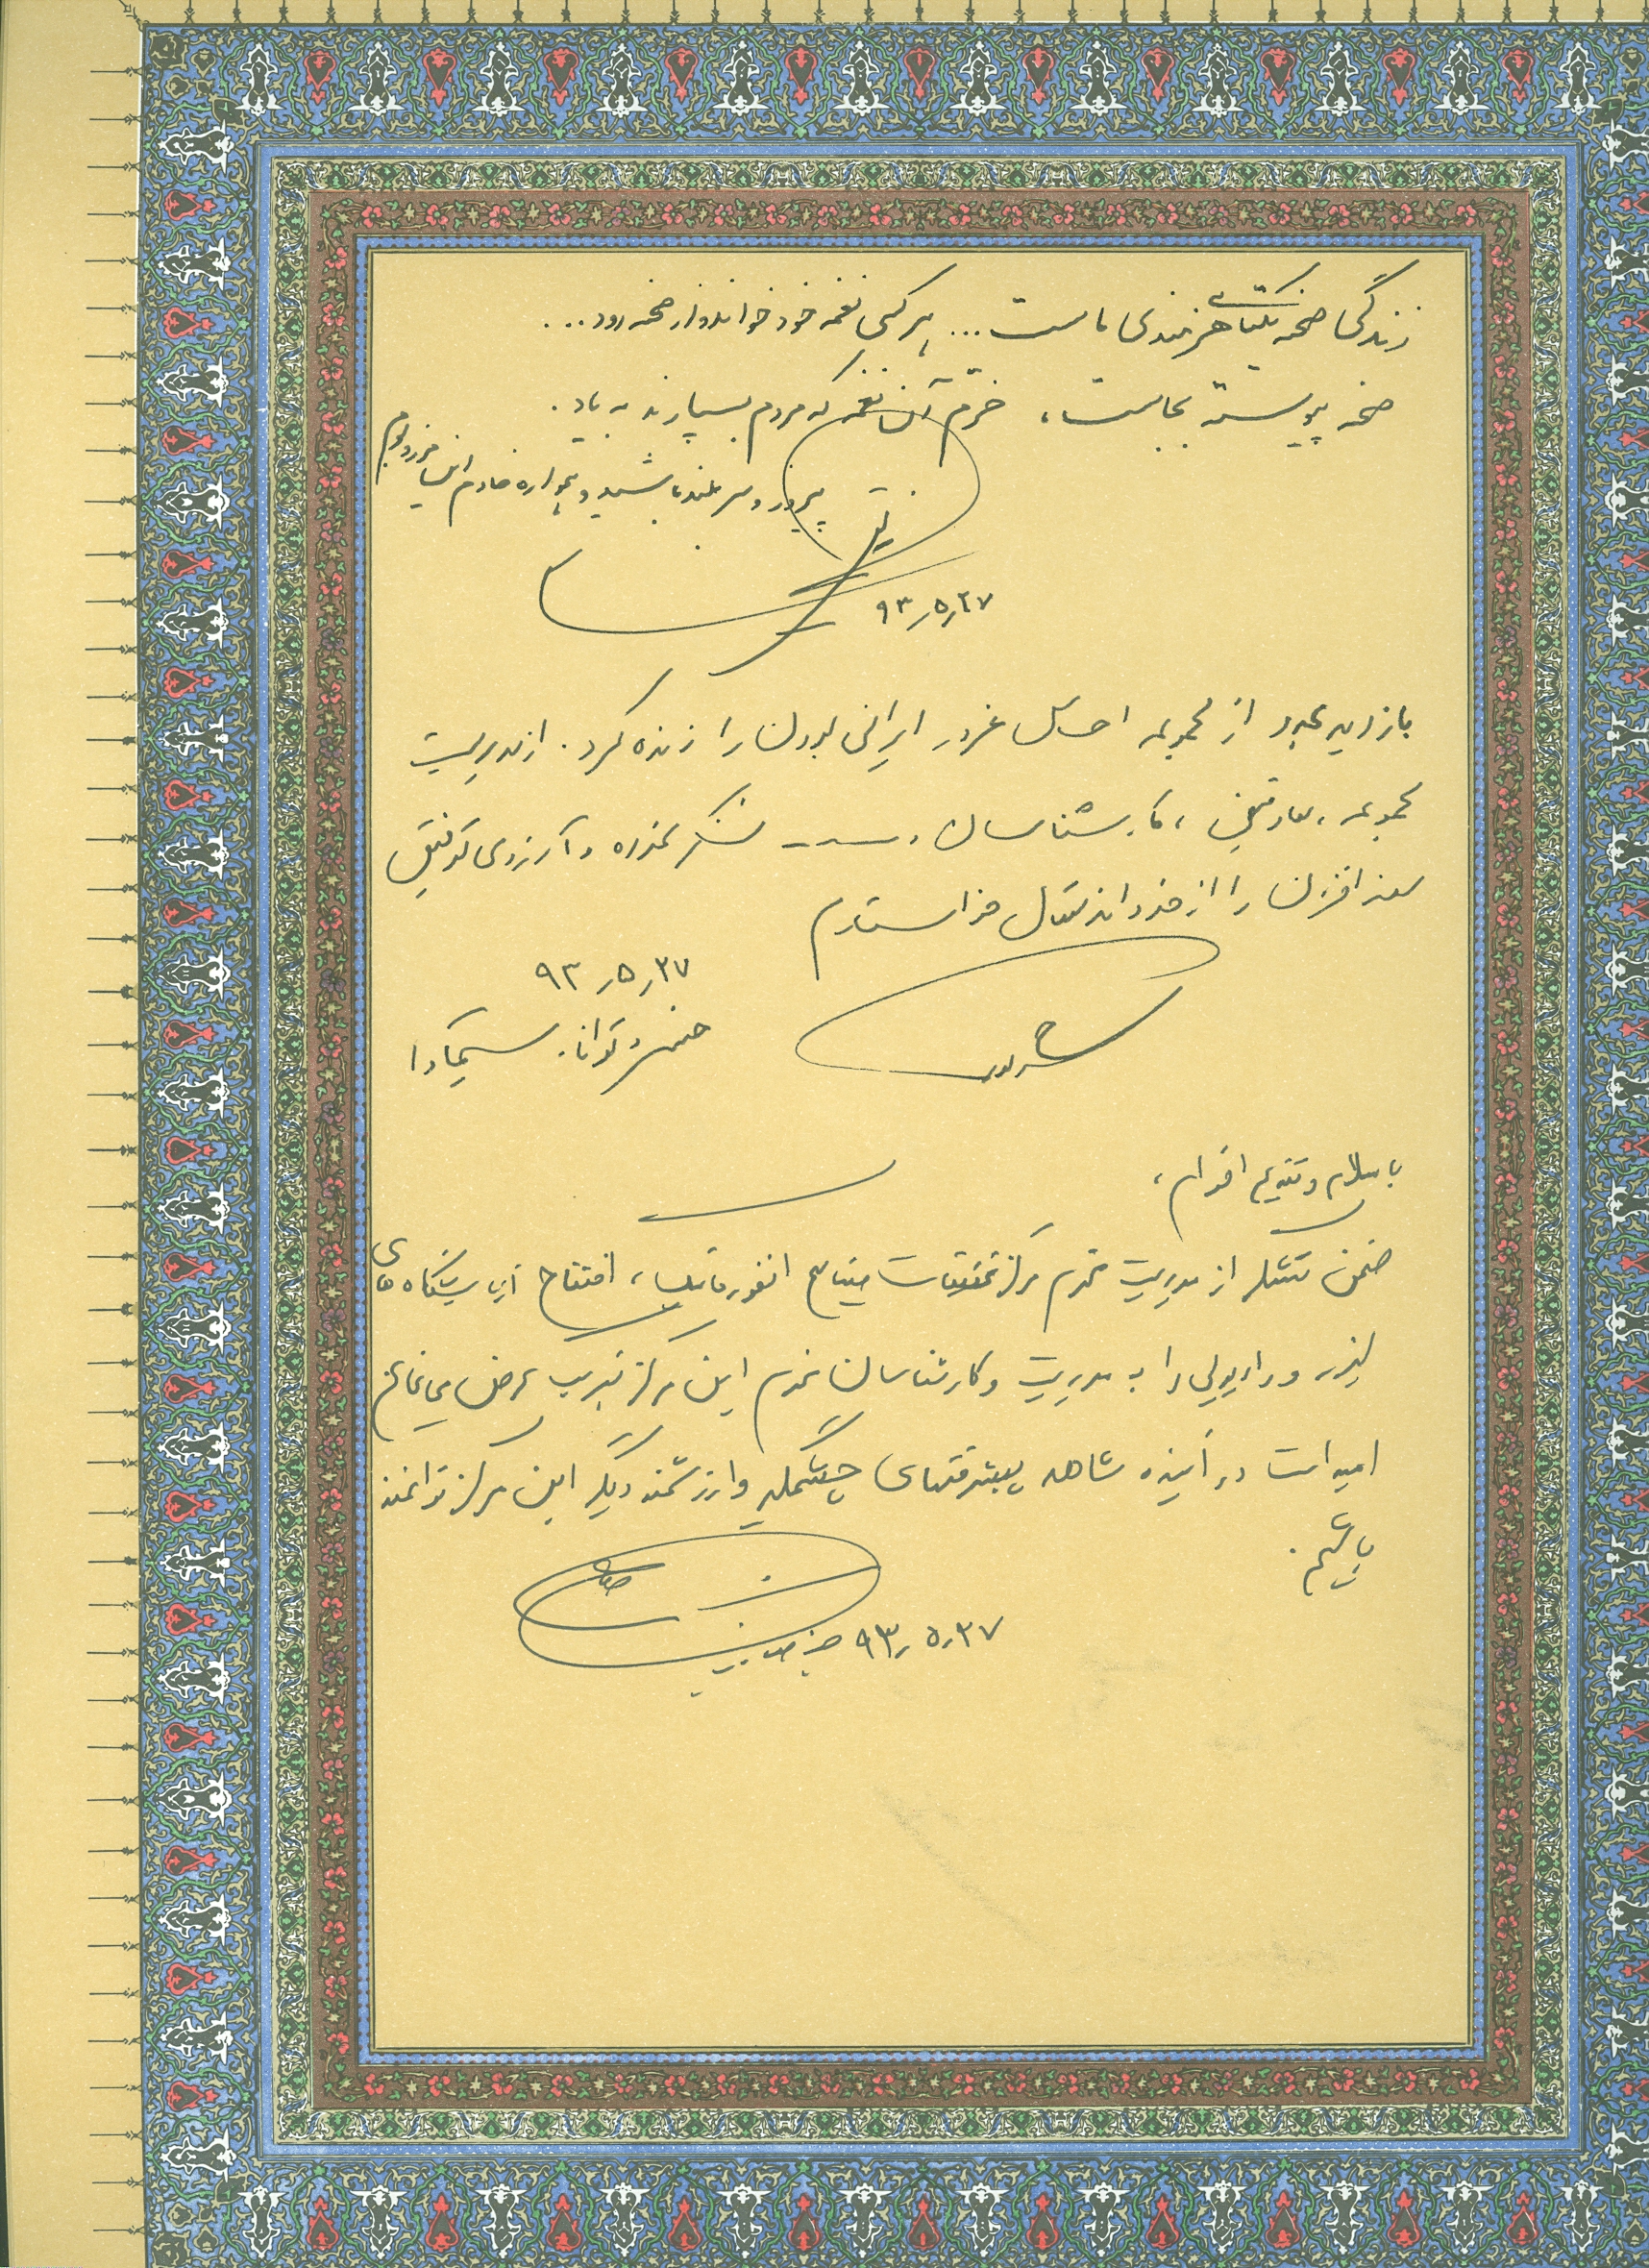 زندگی صحنه یکتای هنرمندی ماست... هر کسی نغمه خود خواند و از صحنه رود...
صحنه پیوسته بجاست، خرم آن نغمه که مردم بسپارند به یاد.
پیروز و سربلند باشید و همواره خادم این مرز و بوم
۹۳٫۵٫۲۷
بازدید از مجموعه احساس غرور ایرانی بودن را زنده کرد. از مدیریت
مجموعه، معاونین، کارشناسان و تشکر نموده و آرزوی توفیق
روز افزون را از خداوند متعال خواستارم
۹۳٫۵٫۲۷
باسلام و تقدیم احترام،
ضمن تشکر از مدیریت محترم مرکز تحقیقات صنایع انفورماتیک، افتتاح آزمایشگاه های
لیزر و را به مدیریت و کارشناسان محترم این مرکز تبریک عرض می نمایم
امید است در آینده شاهد پیشرفتهای چشمگیر و ارزشمند دیگر این مرکز توانمند
باشیم.
۹۳٫۵٫۲۷